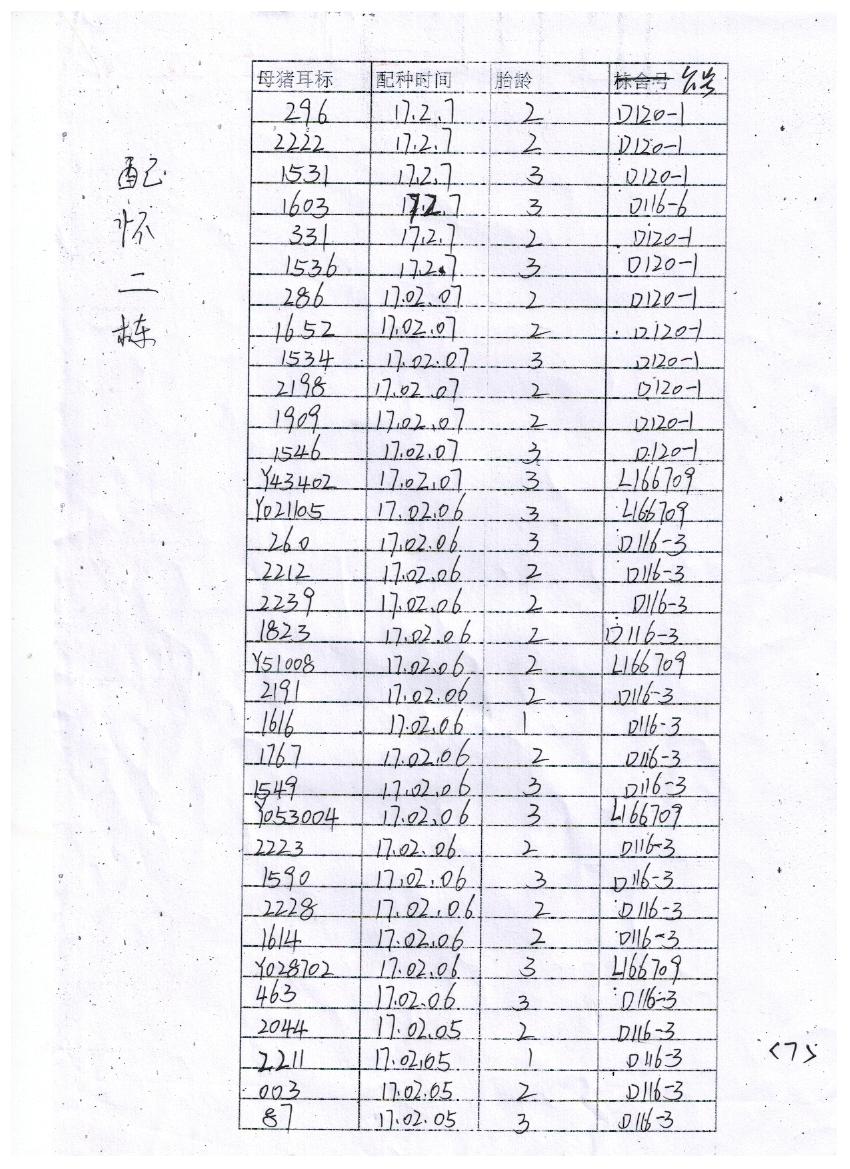 配
怀
二
栋
母猪耳标 配种时间 胎龄 标舍号 公号
296 17.2.7 2 D120-1
2222 17.2.7 2 D120-1
1531 17.2.7 3 D120-1
1603 17.2.7 3 D116-6
331 17.2.7 2 D120-1
1536 17.2.7 3 D120-1
286 17.02.07 2 D120-1
1652 17.02.07 2 D120-1
1534 17.02.07 3 D120-1
2198 17.02.07 2 D120-1
1909 17.02.07 2 D120-1
1546 17.02.07 3 D120-1
Y43402 17.02.07 3 L166709
Y021105 17.02.06 3 L166709
260 17.02.06 3 D116-3
2212 17.02.06 2 D116-3
2239 17.02.06 2 D116-3
1823 17.02.06 2 D116-3
Y51008 17.02.06 2 L166709
2191 17.02.06 2 D116-3
1616 17.02.06 1 D116-3
1767 17.02.06 2 D116-3
1549 17.02.06 3 D116-3
Y053004 17.02.06 3 L166709
2223 17.02.06 2 D116-3
1590 17.02.06 3 D116-3
2228 17.02.06 2 D116-3
1614 17.02.06 2 D116-3
Y028702 17.02.06 3 L166709
463 17.02.06 3 D116-3
2044 17.02.05 2 D116-3
2211 17.02.05 1 D116-3
003 17.02.05 2 D116-3
87 17.02.05 3 D116-3
<7>